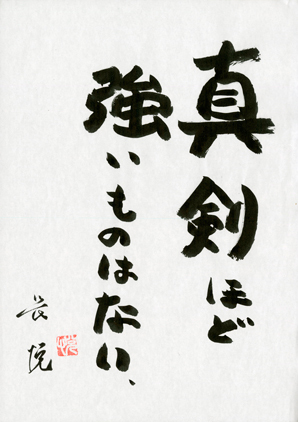 真剣ほど
強いものはない、